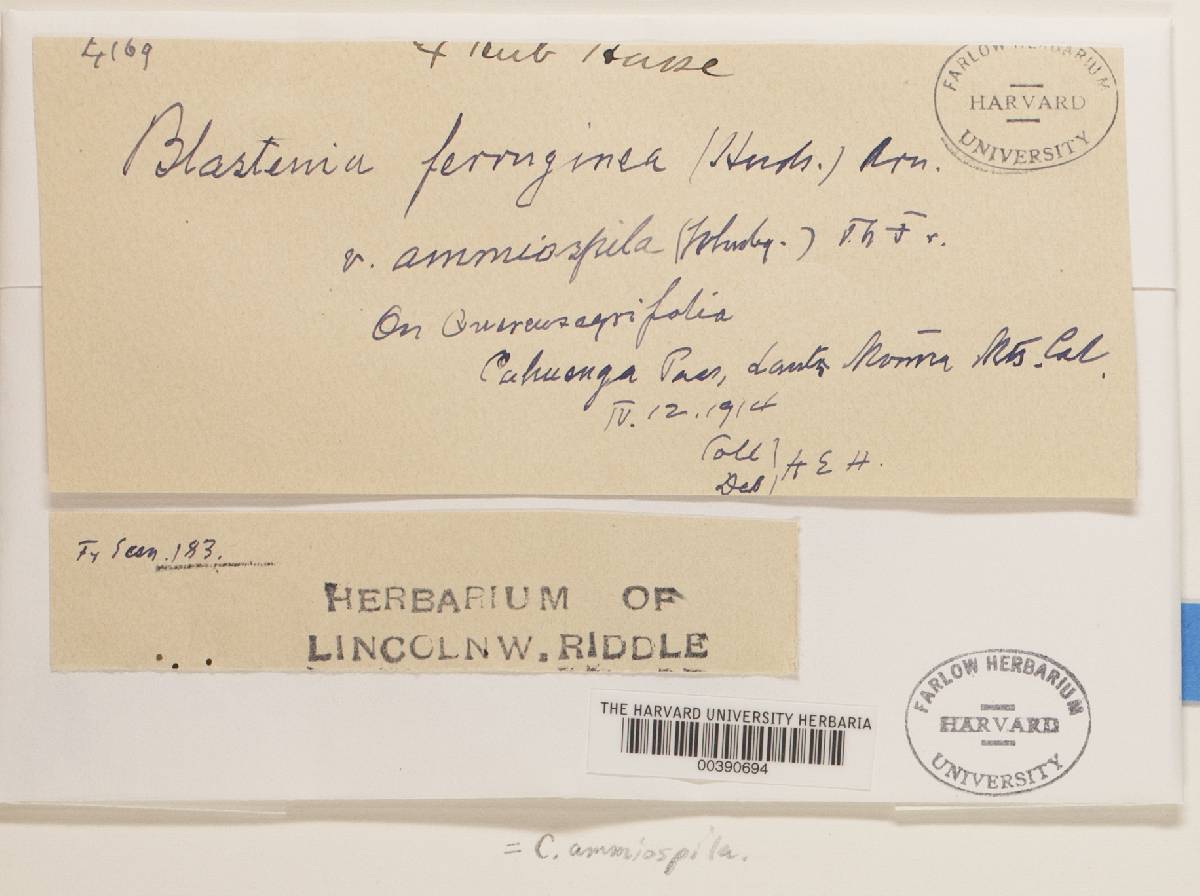 4169
Hasse
FARLOW HERBARIUM
HARVARD
UNIVERSITY
Blastenia ferruginea (Huds.) Arn.
v. ammiospila (Whnbg.) Th Fr.
On Quercus agrifolia
Cahuenga Pass, Santa Monica Mts. Cal.
IV. 12. 1914
Coll
Det } H E H.
183.
HERBARIUM OF
LINCOLN W. RIDDLE
THE HARVARD UNIVERSITY HERBARIA
00390694
FARLOW HERBARIUM
HARVARD
UNIVERSITY
= C. ammiospila.